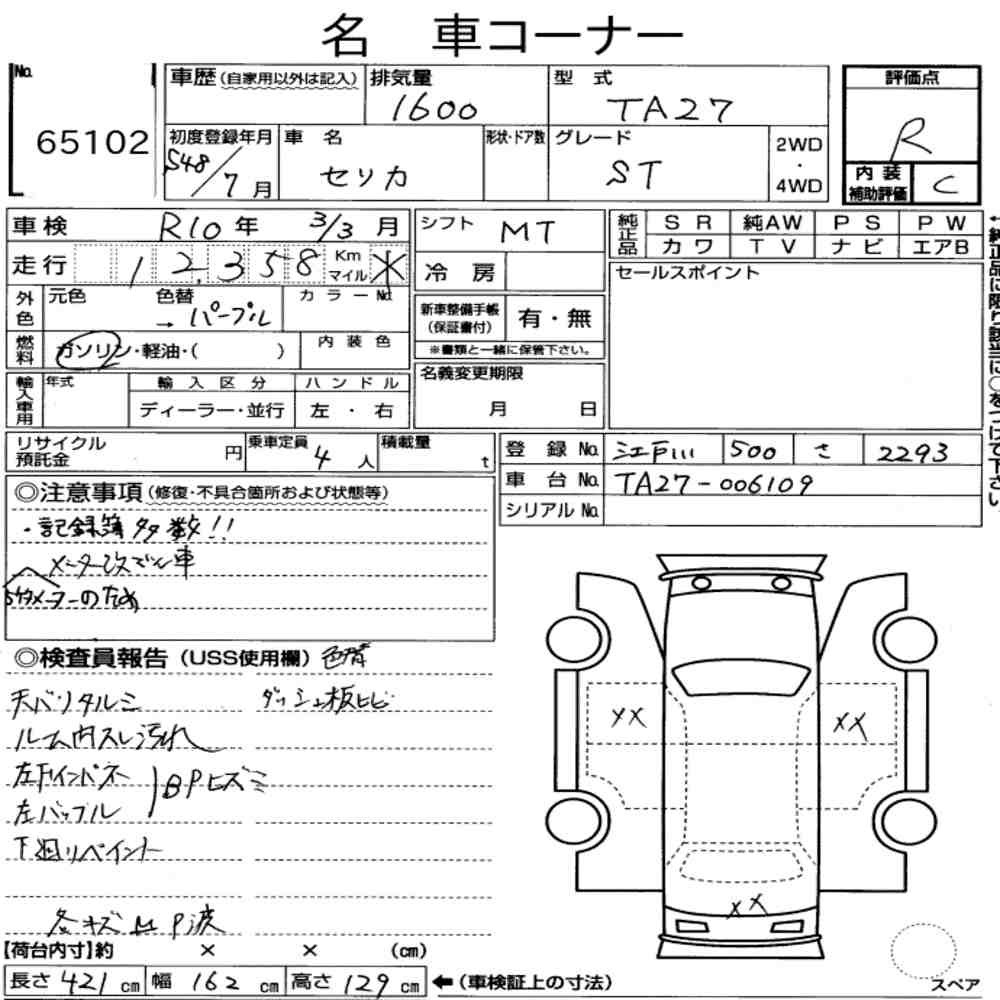 名 車コーナー
No.
65102
車歴 (自家用以外は記入)
排気量
1600
型 式
TA27
評価点
R
初度登録年月
S48/7月
車 名
セリカ
形状・ドア数
グレード
ST
2WD
・
4WD
内 装
補助評価
C
車検 R10年 3/3月
シフト MT
純正品
SR 純AW PS PW
カワ TV ナビ エアB
走行 12,358 Km
マイル
冷 房
セールスポイント
外色
元色 色替 カラーNo.
→ パープル
新車整備手帳
(保証書付)
有・無
※書類と一緒に保管下さい。
燃料
ガソリン・軽油・( )
内 装 色
輸入車用
年式 輸 入 区 分 ハ ン ド ル
ディーラー・並行 左 ・ 右
名義変更期限
月 日
リサイクル
預託金
円
乗車定員
4人
積載量
t
登 録 No. 江戸川 500 さ 2293
車 台 No. TA27-006109
シリアル No.
←純正品に限り該当に○をつけて下さい。
◎注意事項 (修復・不具合箇所および状態等)
・記録簿多数!!
メーター改ざん車
5ケタメーターのため
◎検査員報告 (USS使用欄) 色替
天バリタルミ ダッシュ板ヒビ
ルーム内スレ汚れ
左Fインパネ
左バッフル
BPヒズミ
下廻リペイント
各キズ M P波
XX
XX
XX
【荷台内寸】約 × × (cm)
長さ 421 cm 幅 162 cm 高さ 129 cm ←(車検証上の寸法)
スペア